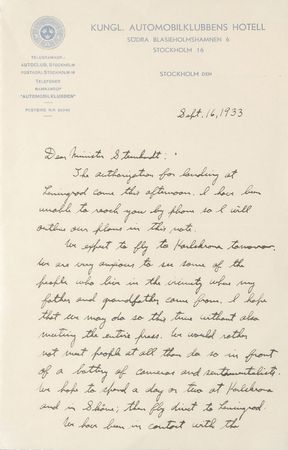 KUNGL. AUTOMOBILKLUBBENS HOTELL
SÖDRA BLASIEHOLMSHAMNEN 6
STOCKHOLM 16
TELEGRAMADR.:
AUTOCLUB, STOCKHOLM
POSTADR.: STOCKHOLM 16
TELEFONER
NAMNANROP
"AUTOMOBILKLUBBEN"
POSTGIRO NR
STOCKHOLM DEN
Sept. 16, 1933
Dear Minister Steinhardt:
The authorization for landing at
Leningrad came this afternoon. I have been
unable to reach you by phone so I will
outline our plans in this note.
We expect to fly to Karlskrona tomorrow.
We are very anxious to see some of the
people who live in the vicinity where my
father and grandfather came from. I hope
that we may do so this time without also
meeting the entire press. We would rather
not meet people at all than do so in front
of a battery of cameras and sentimentalists.
We hope to spend a day or two at Karlskrona
and in Skåne; then fly direct to Leningrad
We have been in contact with the